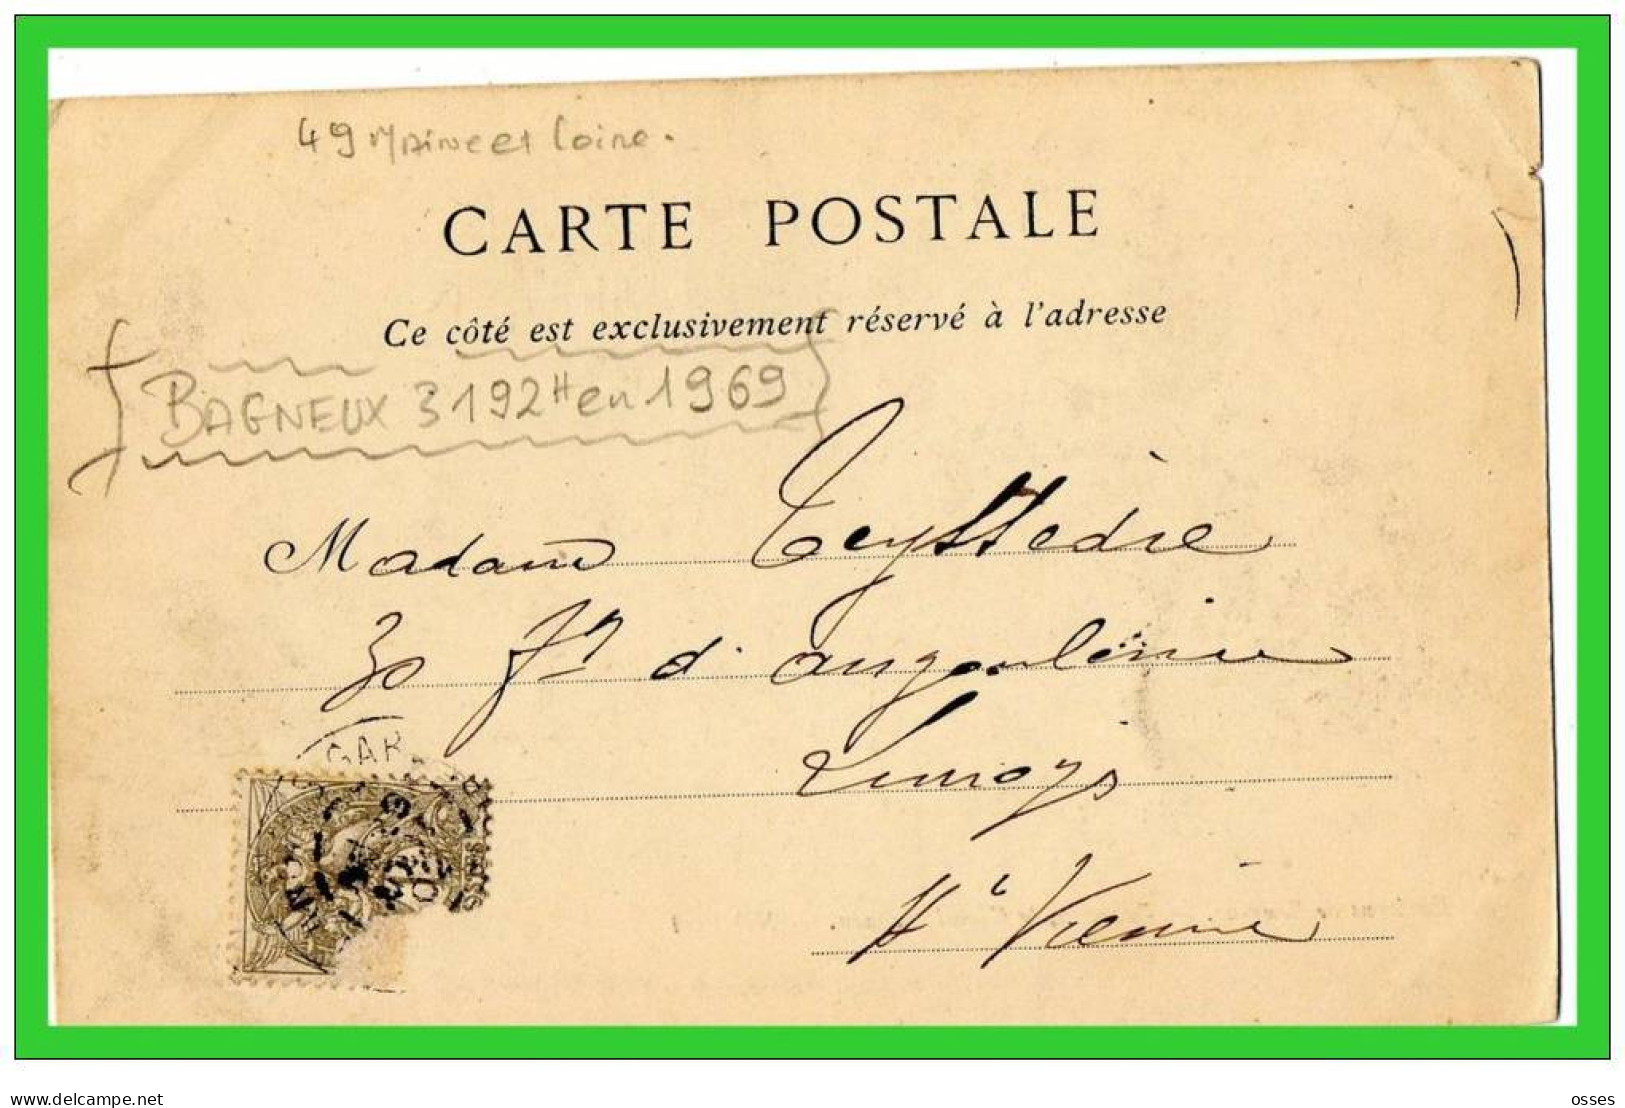 49 Maine et Loire.
CARTE POSTALE
Ce côté est exclusivement réservé à l'adresse
BAGNEUX 3192 H en 1969
Madame Teyssedre
30 Fg d'angoulême
Limoges
Hte Vienne
GAR
www.delcampe.net
osses